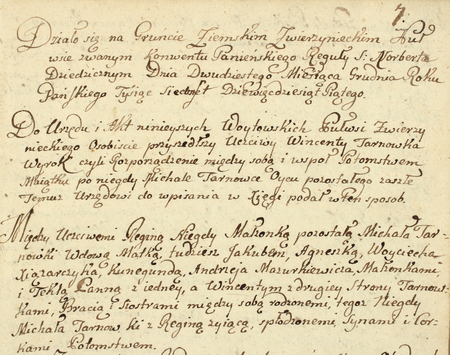 7.
Działo się na Gruncie Ziemskim Zwierzynieckim Pul
wsie zwanym Konwentu Panieńskiego Reguły S: Norberta
Dziedzicznym Dnia Dwudziestego Miesiąca Grudnia Roku
Pańskiego Tysiąc Siedmset Dziewięćdziesiąt Piątego.
Do Urzędu i Akt ninieyszych Woytowskich Pulwsi Zwierzy
nieckiego Osobiście przyszedłszy Uczciwy Wincenty Tarnowka
Wyrok czyli Rozporządzenie między sobą i wspoł Potomstwem
Maiątku po niegdy Michale Tarnowce Oycu pozostałego zaszłe
Temuż Urzędowi do wpisania w Xięgi podał w ten sposob.
Między Uczciwemi Reginą Niegdy Małżonką pozostałą Michała Tar-
nowki Wdową Matką, tudzież Jakubem, Agnieszką, Woyciecha
Xiązarczyka, Kunegundą, Andrzeja Mazurkiewicza Małżonkami,
i Teklą Panną z iedney, a Wincentym z drugiey Strony Tarnow-
kami, Bracią i Siostrami między sobą rodzonemi, tegoż Niegdy
Michała Tarnowki z Reginą żyiącą, spłodzonemi, Synami i Cor-
kami Potomstwem.